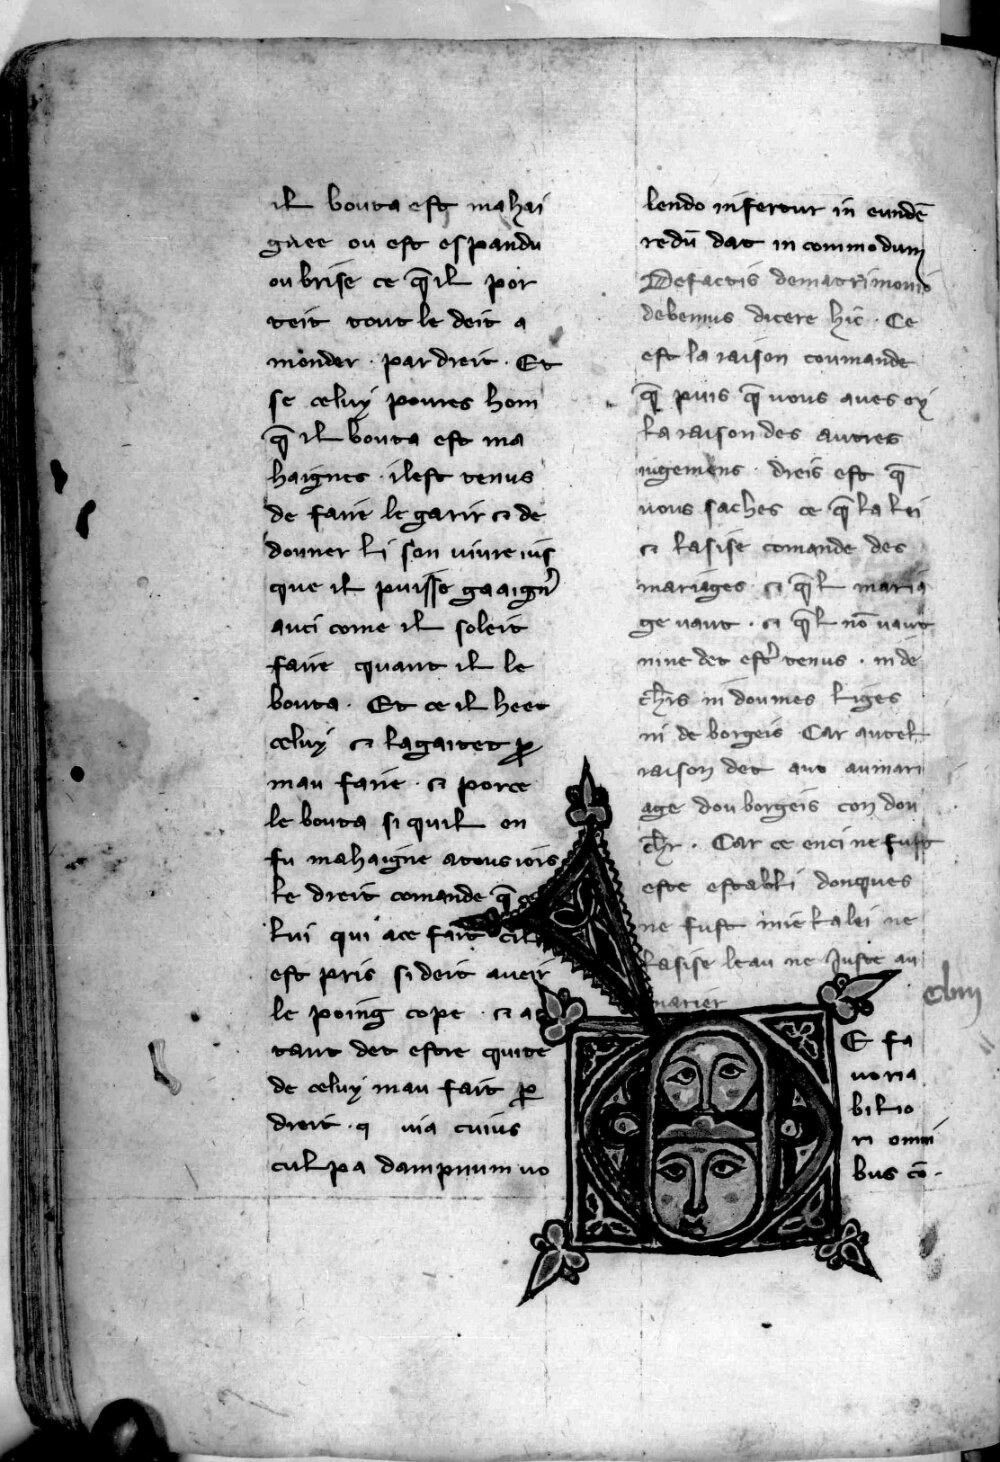 il bouta est mahai
gnee ou est espandu
ou brise ce q̄ il por
teit tout le deit a
mender · par dreit · Et
se celuy poures hom
q̄ il bouta est ma
haignes · il est tenus
de faire le garir ⁊ de
douner li son uiure ius
que il puisse gaaignʼ
auci come il soleit
faire quant il le
bouta · Et ce il heet
celuy ⁊ lagaitet ꝑ
mau faire · ⁊ porce
le bouta si quil en
fu mahaigne atous iors
le dreit comande q̄ ce
lui qui ace fait cil
est pris si deit aueir
le poing cope · ⁊ a
tant det estre quite
de celuy mau fait ꝑ
dreit · q uia cuius
culpa dampnum uo
lendo infertur in eundē
redū dat in commodum
De factis de matrimonio
debemus dicere hic · Ce
est la raison coumande
q̄ puis q̄ uous aues oy
la raison des autres
iugemens · dreis est q̄
uous saches ce q̄ la lei
⁊ lasise comande des
mariages · ⁊ q̄l maria
ge uaut · ⁊ q̄l nō uaut
nine det estʼ tenus · ni de
ch̄rs ni doumes liges
ni de borgeis Car autel
raison det auo au mari
age dou borgeis con dou
ch̄r · Car ce enci ne fust
este establi donques
ne fust mie la lei ne
lasise leau ne iuste au
marier
clvii
E fa
uora
bilio
ri omni
bus cō·